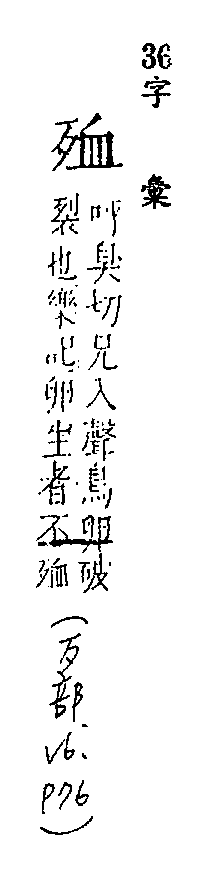 36字彙
殈
呼臭切兄入聲鳥卵破
裂也樂記卵生者不殈
(歹部.V6.P76)